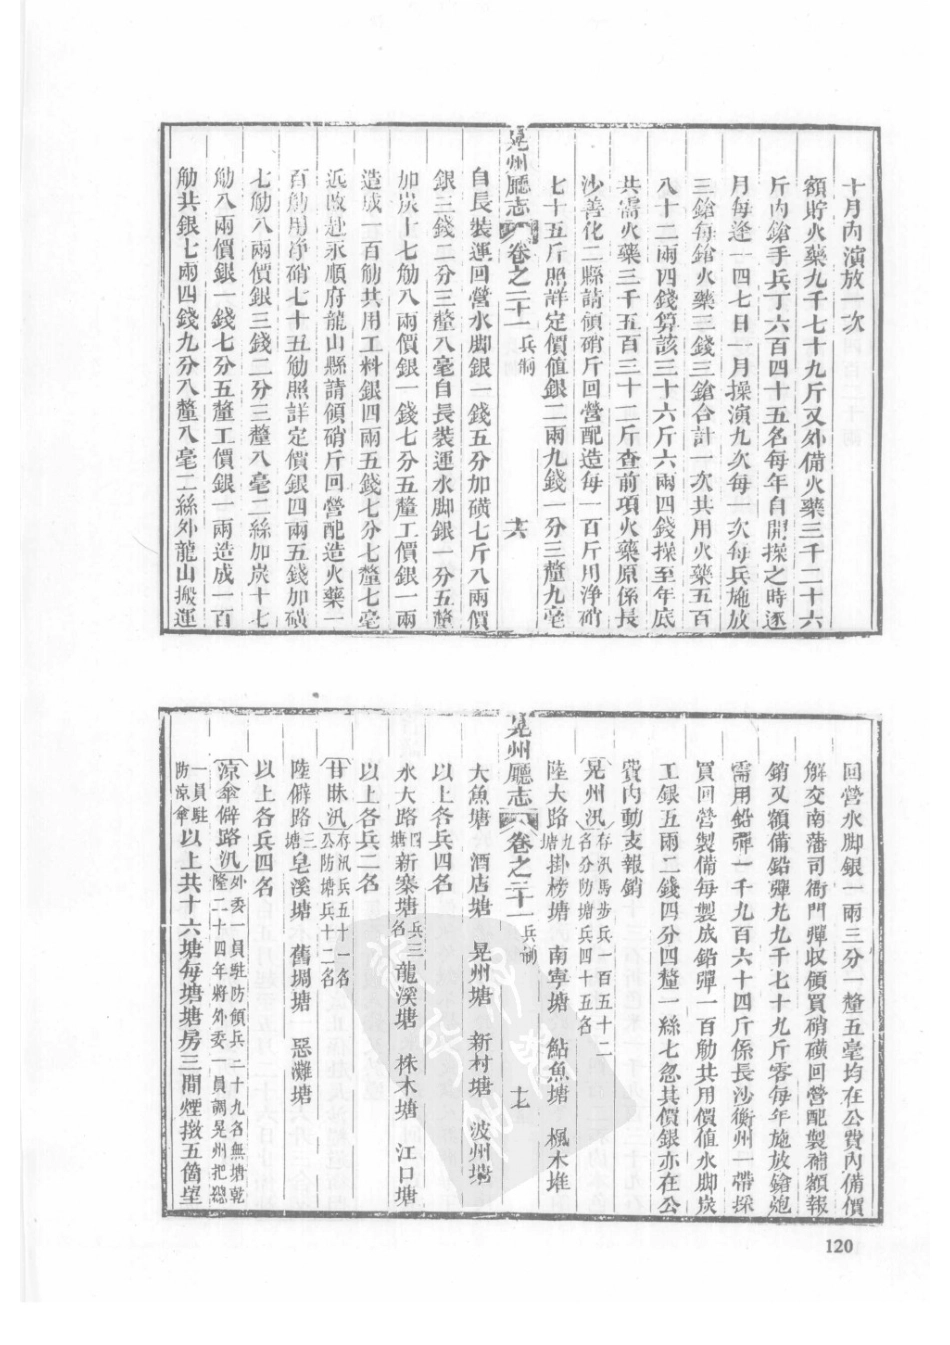 十月內演放一次
額貯火藥九千七十九斤又外備火藥三千二十六
斤內鎗手兵丁六百四十五名每年自開操之時逐
月每逢一四七日一月操演九次每一次每兵施放
三鎗每鎗火藥三錢三鎗合計一次共用火藥五百
八十二兩四錢算該三十六斤六兩四錢操至年底
共需火藥三千五百三十二斤查前項火藥原係長
沙善化二縣請領硝斤回營配造每一百斤用淨硝
七十五斤照詳定價值銀二兩九錢一分三釐九毫
晃州廳志 卷之二十一 兵制 十六
自長裝運回營水脚銀一錢五分加磺七斤八兩價
銀三錢二分三釐八毫自長裝運水脚銀一分五釐
加炭十七觔八兩價銀一錢七分五釐工價銀一兩
造成一百觔共用工料銀四兩五錢七分七釐七毫
近改赴永順府龍山縣請領硝斤回營配造火藥一
百觔用净硝七十五觔照詳定價銀四兩五錢加磺
七觔八兩價銀三錢二分三釐八毫二絲加炭十七
觔八兩價銀一錢七分五釐工價銀一兩造成一百
觔共銀七兩四錢九分八釐八毫二絲外龍山搬運
回營水脚銀一兩三分一釐五毫均在公費內備價
解交南藩司衙門彈收領買硝磺回營配製補額報
銷又額備鉛彈九九千七十九斤零每年施放鎗砲
需用鉛彈一千九百六十四斤係長沙衡州一帶採
買回營製備每製成鉛彈一百觔共用價值水脚炭
工銀五兩二錢四分四釐一絲七忽其價銀亦在公
費內動支報銷
晃州汛 存汛馬步兵一百五十二名分防塘兵四十五名
陸大路九塘 掛榜塘 南寧塘 鮎魚塘 楓木堆
晃州廳志 卷之二十一 兵制 十七
大魚塘 酒店塘 晃州塘 新村塘 波州塘
以上各兵四名
水大路四塘 新寨塘兵三名 龍溪塘 株木塘 江口塘
以上各兵二名
甘眛汛 存汛兵五十一名公防塘兵十二名
陸僻路三塘 皂溪塘 舊堨塘 惡灘塘
以上各兵四名
涼傘僻路汛 外委一員駐防領兵二十九名無塘乾隆二十四年將外委一員調晃州把總
一員駐防涼傘 以上共十六塘每塘塘房三間煙墩五箇望
120